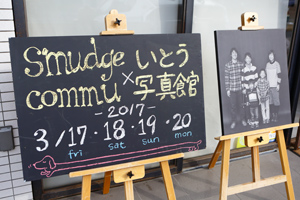 smudge いとう
commu × 写真館
-2017-
3/17・18・19・20
fri sat sun mon